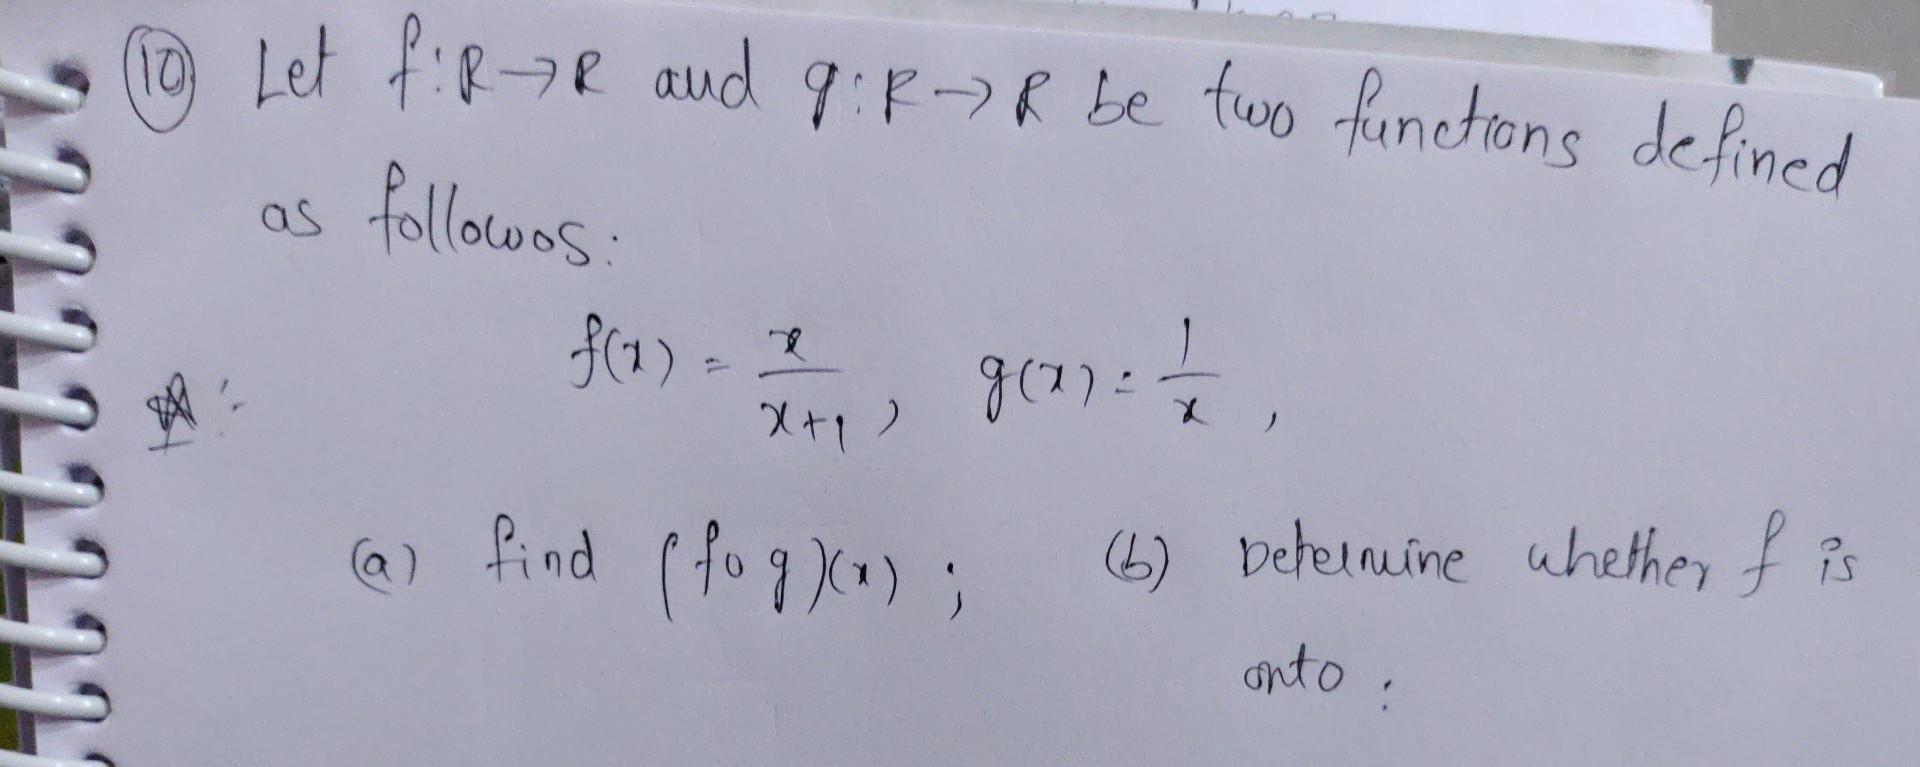 10 Let f:R→R and g:R→R be two functions defined
as followos:
f(x) = x/(x+1), g(x) = 1/x,
(a) find (fog)(x); (b) Determine whether f is
onto.